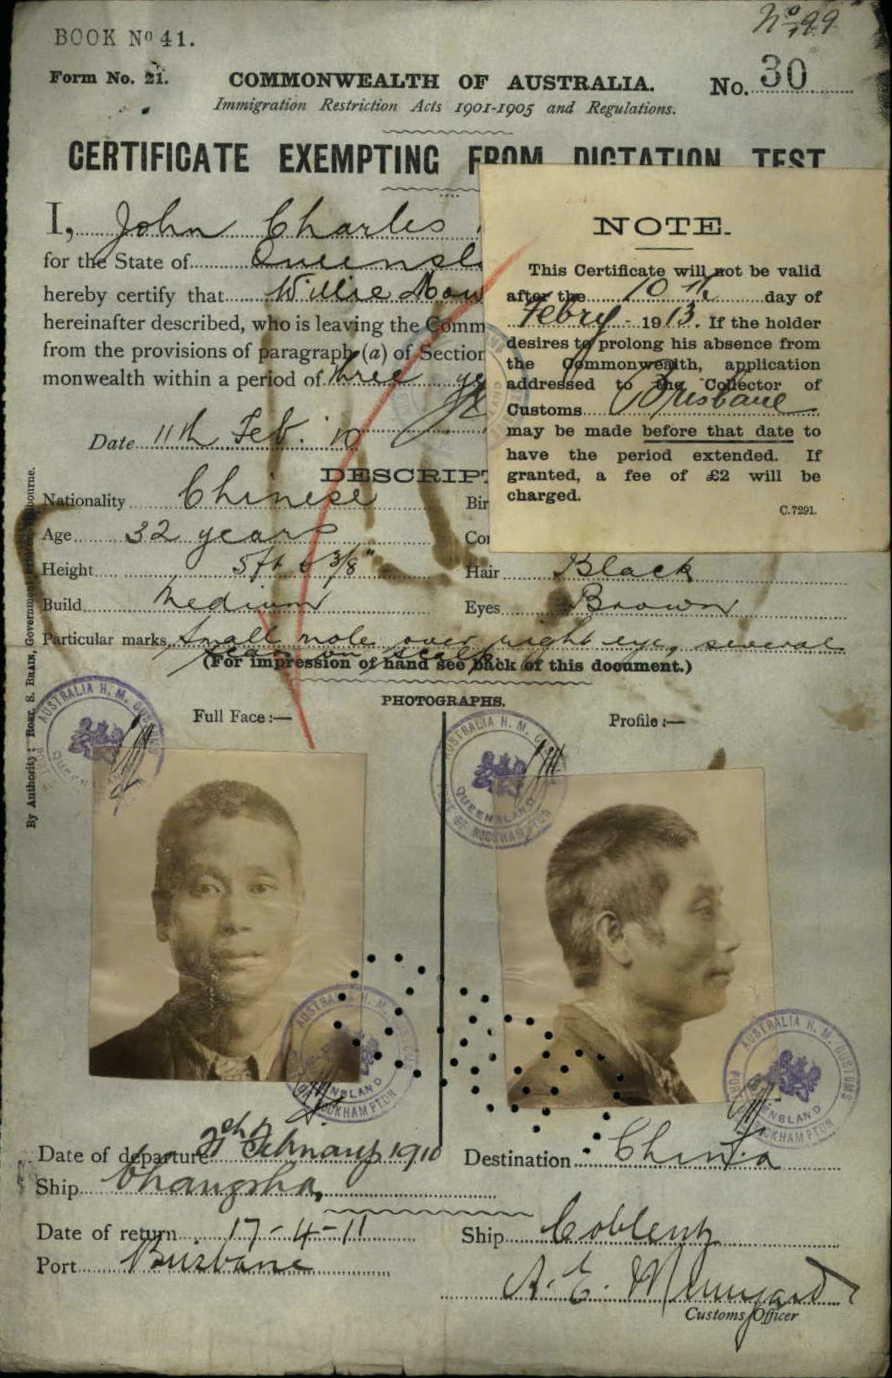 BOOK Nº 41.
Nº 99
Form No. 21.
COMMONWEALTH OF AUSTRALIA.
No. 30
Immigration Restriction Acts 1901-1905 and Regulations.
CERTIFICATE EXEMPTING FROM DICTATION TEST
I, John Charles
for the State of Queensl
hereby certify that Willie
hereinafter described, who is leaving the Comm
from the provisions of paragraph (a) of Section
monwealth within a period of three ye
Date 11th Feb. 10
NOTE.
This Certificate will not be valid
after the 10th day of
Febry - 1913. If the holder
desires to prolong his absence from
the Commonwealth, application
addressed to the Collector of
Customs Brisbane
may be made before that date to
have the period extended. If
granted, a fee of £2 will be
charged.
C.7291.
DESCRIPT
Nationality Chinese
Bir
Age 32 years
Con
Height 5ft 6 3/8"
Hair Black
Build Medium
Eyes Brown
Particular marks Small mole over right eye, several
scars on scalp
(For impression of hand see back of this document.)
PHOTOGRAPHS.
Full Face:—
Profile:—
AUSTRALIA H. M. CUSTOMS
QUEENSLAND
AUSTRALIA H. M. CUSTOMS
QUEENSLAND
PORT OF ROCKHAMPTON
AUSTRALIA H. M.
QUEENSLAND
ROCKHAMPTON
AUSTRALIA H. M. CUSTOMS
QUEENSLAND
ROCKHAMPTON
By Authority: Robt. S. Brain, Government ourne.
Date of departure February 1910
Destination China
Ship Changsha,
Date of return 17-4-11
Ship Coblenz
Port Brisbane
A. E.
Customs Officer